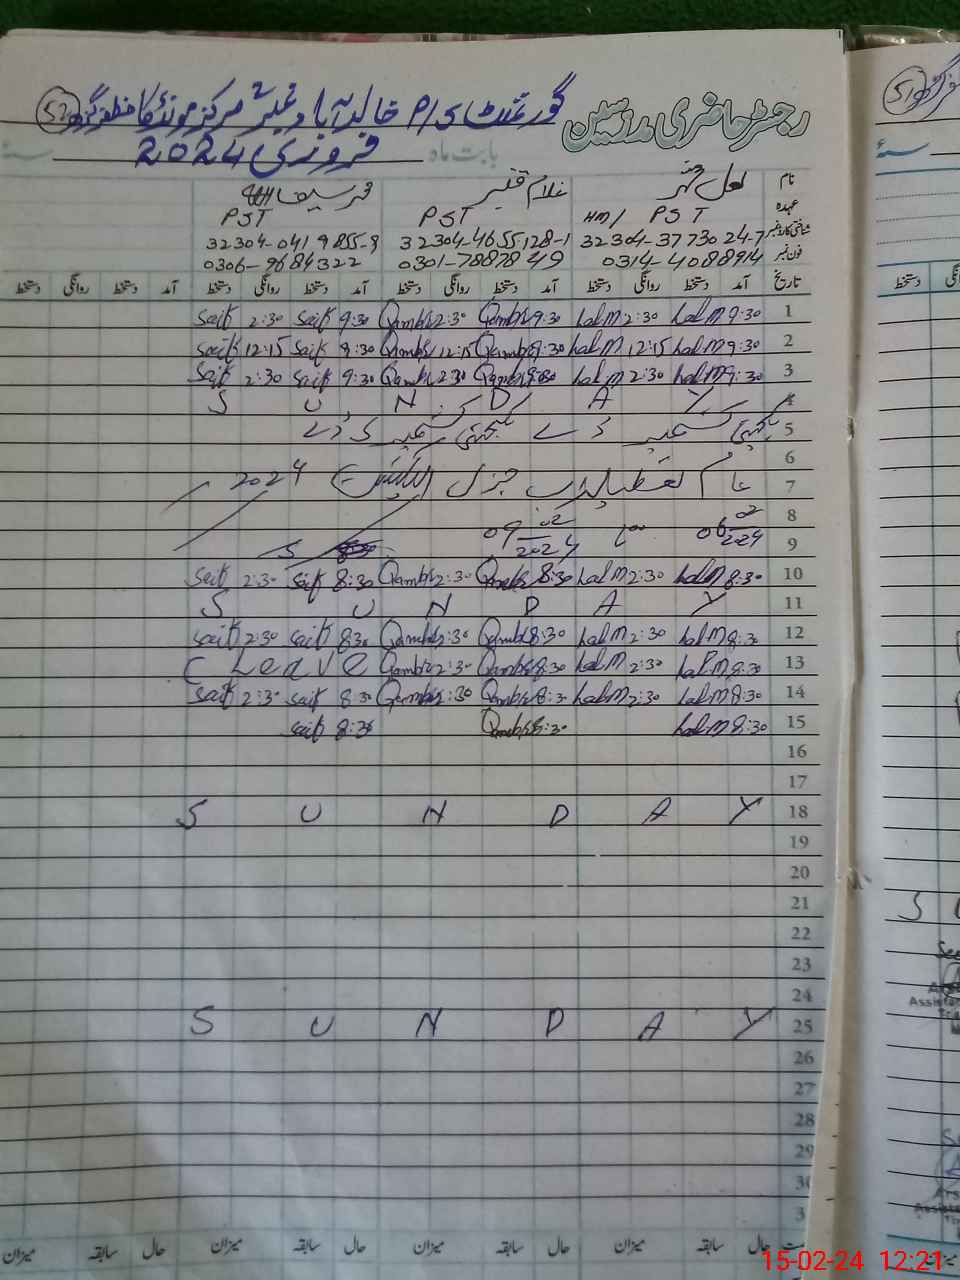 رجسٹر حاضری مدرسین گورنمنٹ P/S خالد آباد نمبر 2 مرکز مونڈکا مظفرگڑھ 52
بابت ماہ فروری 2024 سنہ
نام لعل محمد غلام قنبر محمد سیف اللہ
عہدہ HM/ PST PST PST
شناختی کارڈ نمبر 32304-3773024-7 32304-4655128-1 32304-0419855-9
فون نمبر 0314-4088914 0301-7887849 0306-9684322
تاریخ آمد دستخط روانگی دستخط آمد دستخط روانگی دستخط آمد دستخط روانگی دستخط آمد دستخط روانگی دستخط
1 Lal M 9:30 Lal M 2:30 Qambr 9:30 Qambr 2:30 Saif 9:30 Saif 2:30
2 Lal M 9:30 Lal M 12:15 Qambr 9:30 Qambr 12:15 Saif 9:30 Saif 12:15
3 Lal M 9:30 Lal M 2:30 Qambr 9:30 Qambr 2:30 Saif 9:30 Saif 2:30
4 S U N D A Y
5 یکجہتی کشمیر ڈے یکجہتی کشمیر ڈے
6
7 عام تعطیلات جنرل الیکشن 2024
8
9 06 02 2024 تا 09 02 2024
10 Lal M 8:30 Lal M 2:30 Qambr 8:30 Qambr 2:30 Saif 8:30 Saif 2:30
11 S U N D A Y
12 Lal M 8:30 Lal M 2:30 Qambr 8:30 Qambr 2:30 Saif 8:30 Saif 2:30
13 Lal M 8:30 Lal M 2:30 Qambr 8:30 Qambr 2:30 C Leave
14 Lal M 8:30 Lal M 2:30 Qambr 8:30 Qambr 2:30 Saif 8:30 Saif 2:30
15 Lal M 8:30 Qambr 8:30 Saif 8:30
16
17
18 S U N D A Y
19
20
21
22
23
24
25 S U N D A Y
26
27
28
29
30
3
حال سابقہ میزان حال سابقہ میزان حال سابقہ میزان حال سابقہ میزان
51
سنہ
دستخط
S U
Assista
15-02-24 12:21